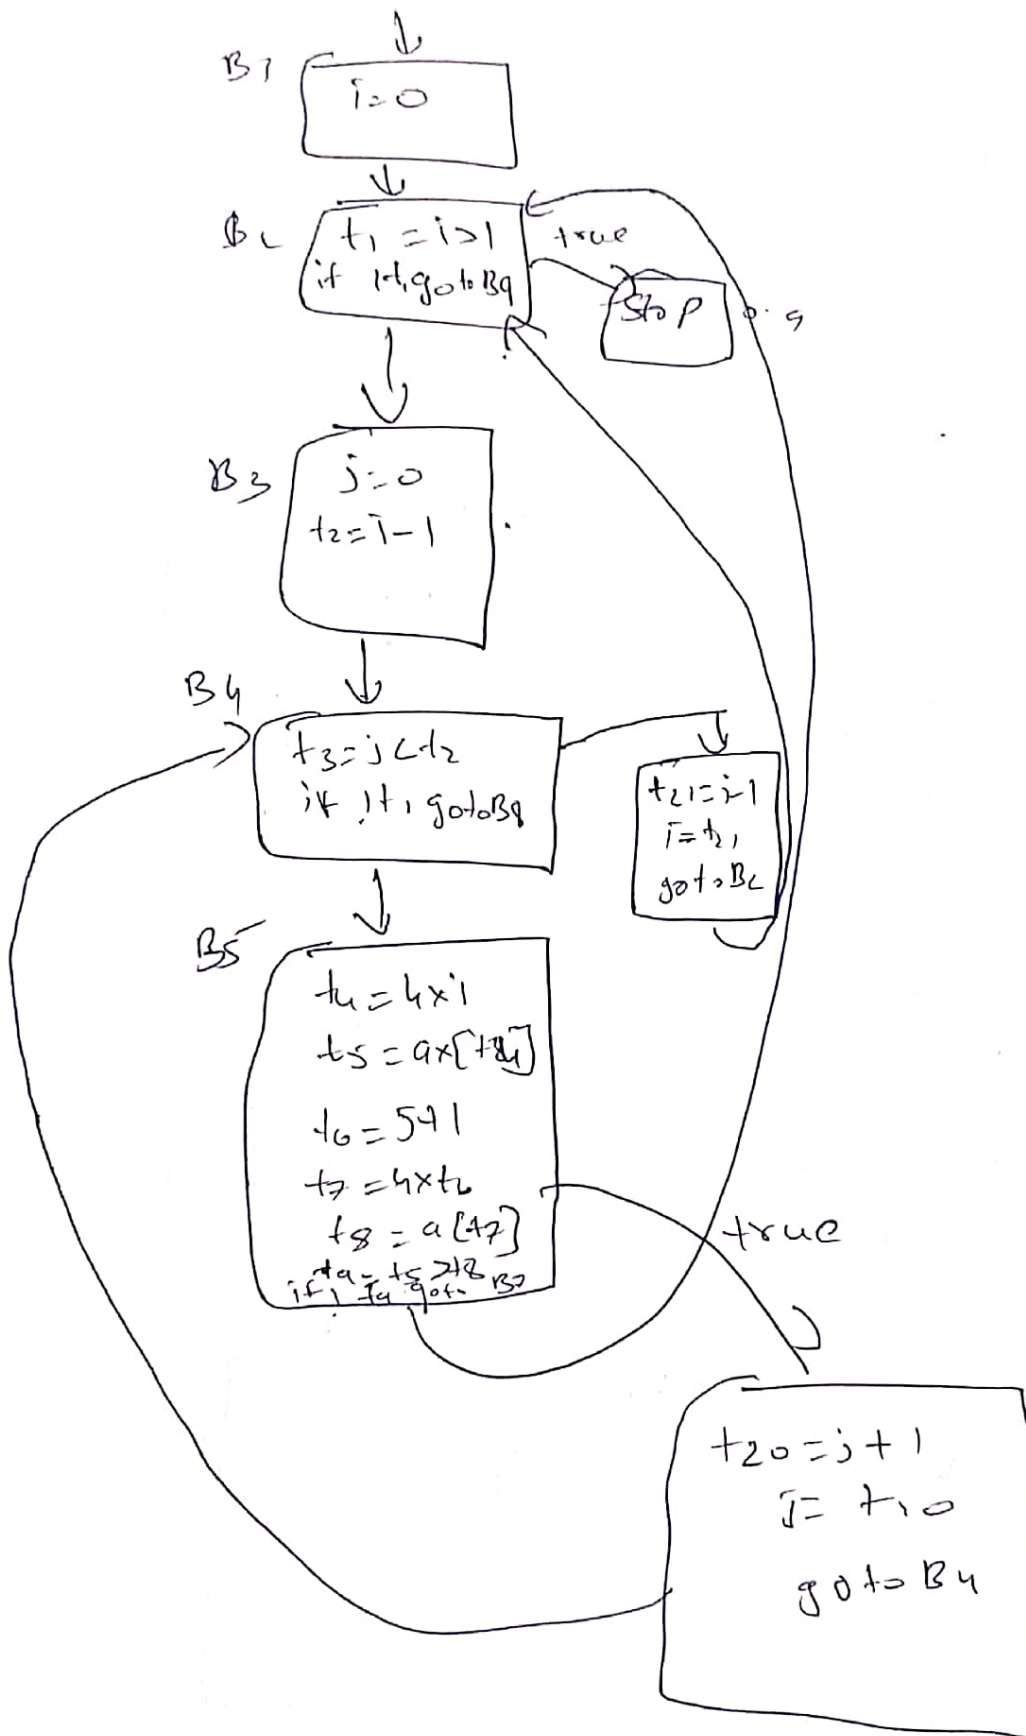 B1
i=0
B2
t1 = i>1
if !t1 goto B9
true
Stop
B3
j=0
t2=i-1
B4
t3=j<t2
if !t1 gotoB8
t21=i-1
i=t21
goto B2
B5
t4=4xi
t5=ax[t4]
t6=5+1
t7=4xt6
t8=a[t7]
t9=t5>t8
if ! t9 goto B7
true
t20=j+1
j= t10
goto B4